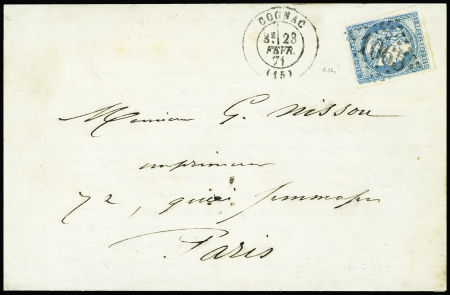 COGNAC
23
FEVR.
71
(15)
Monsieur G. Nissou
imprimeur
72, quai Jemmapes
Paris